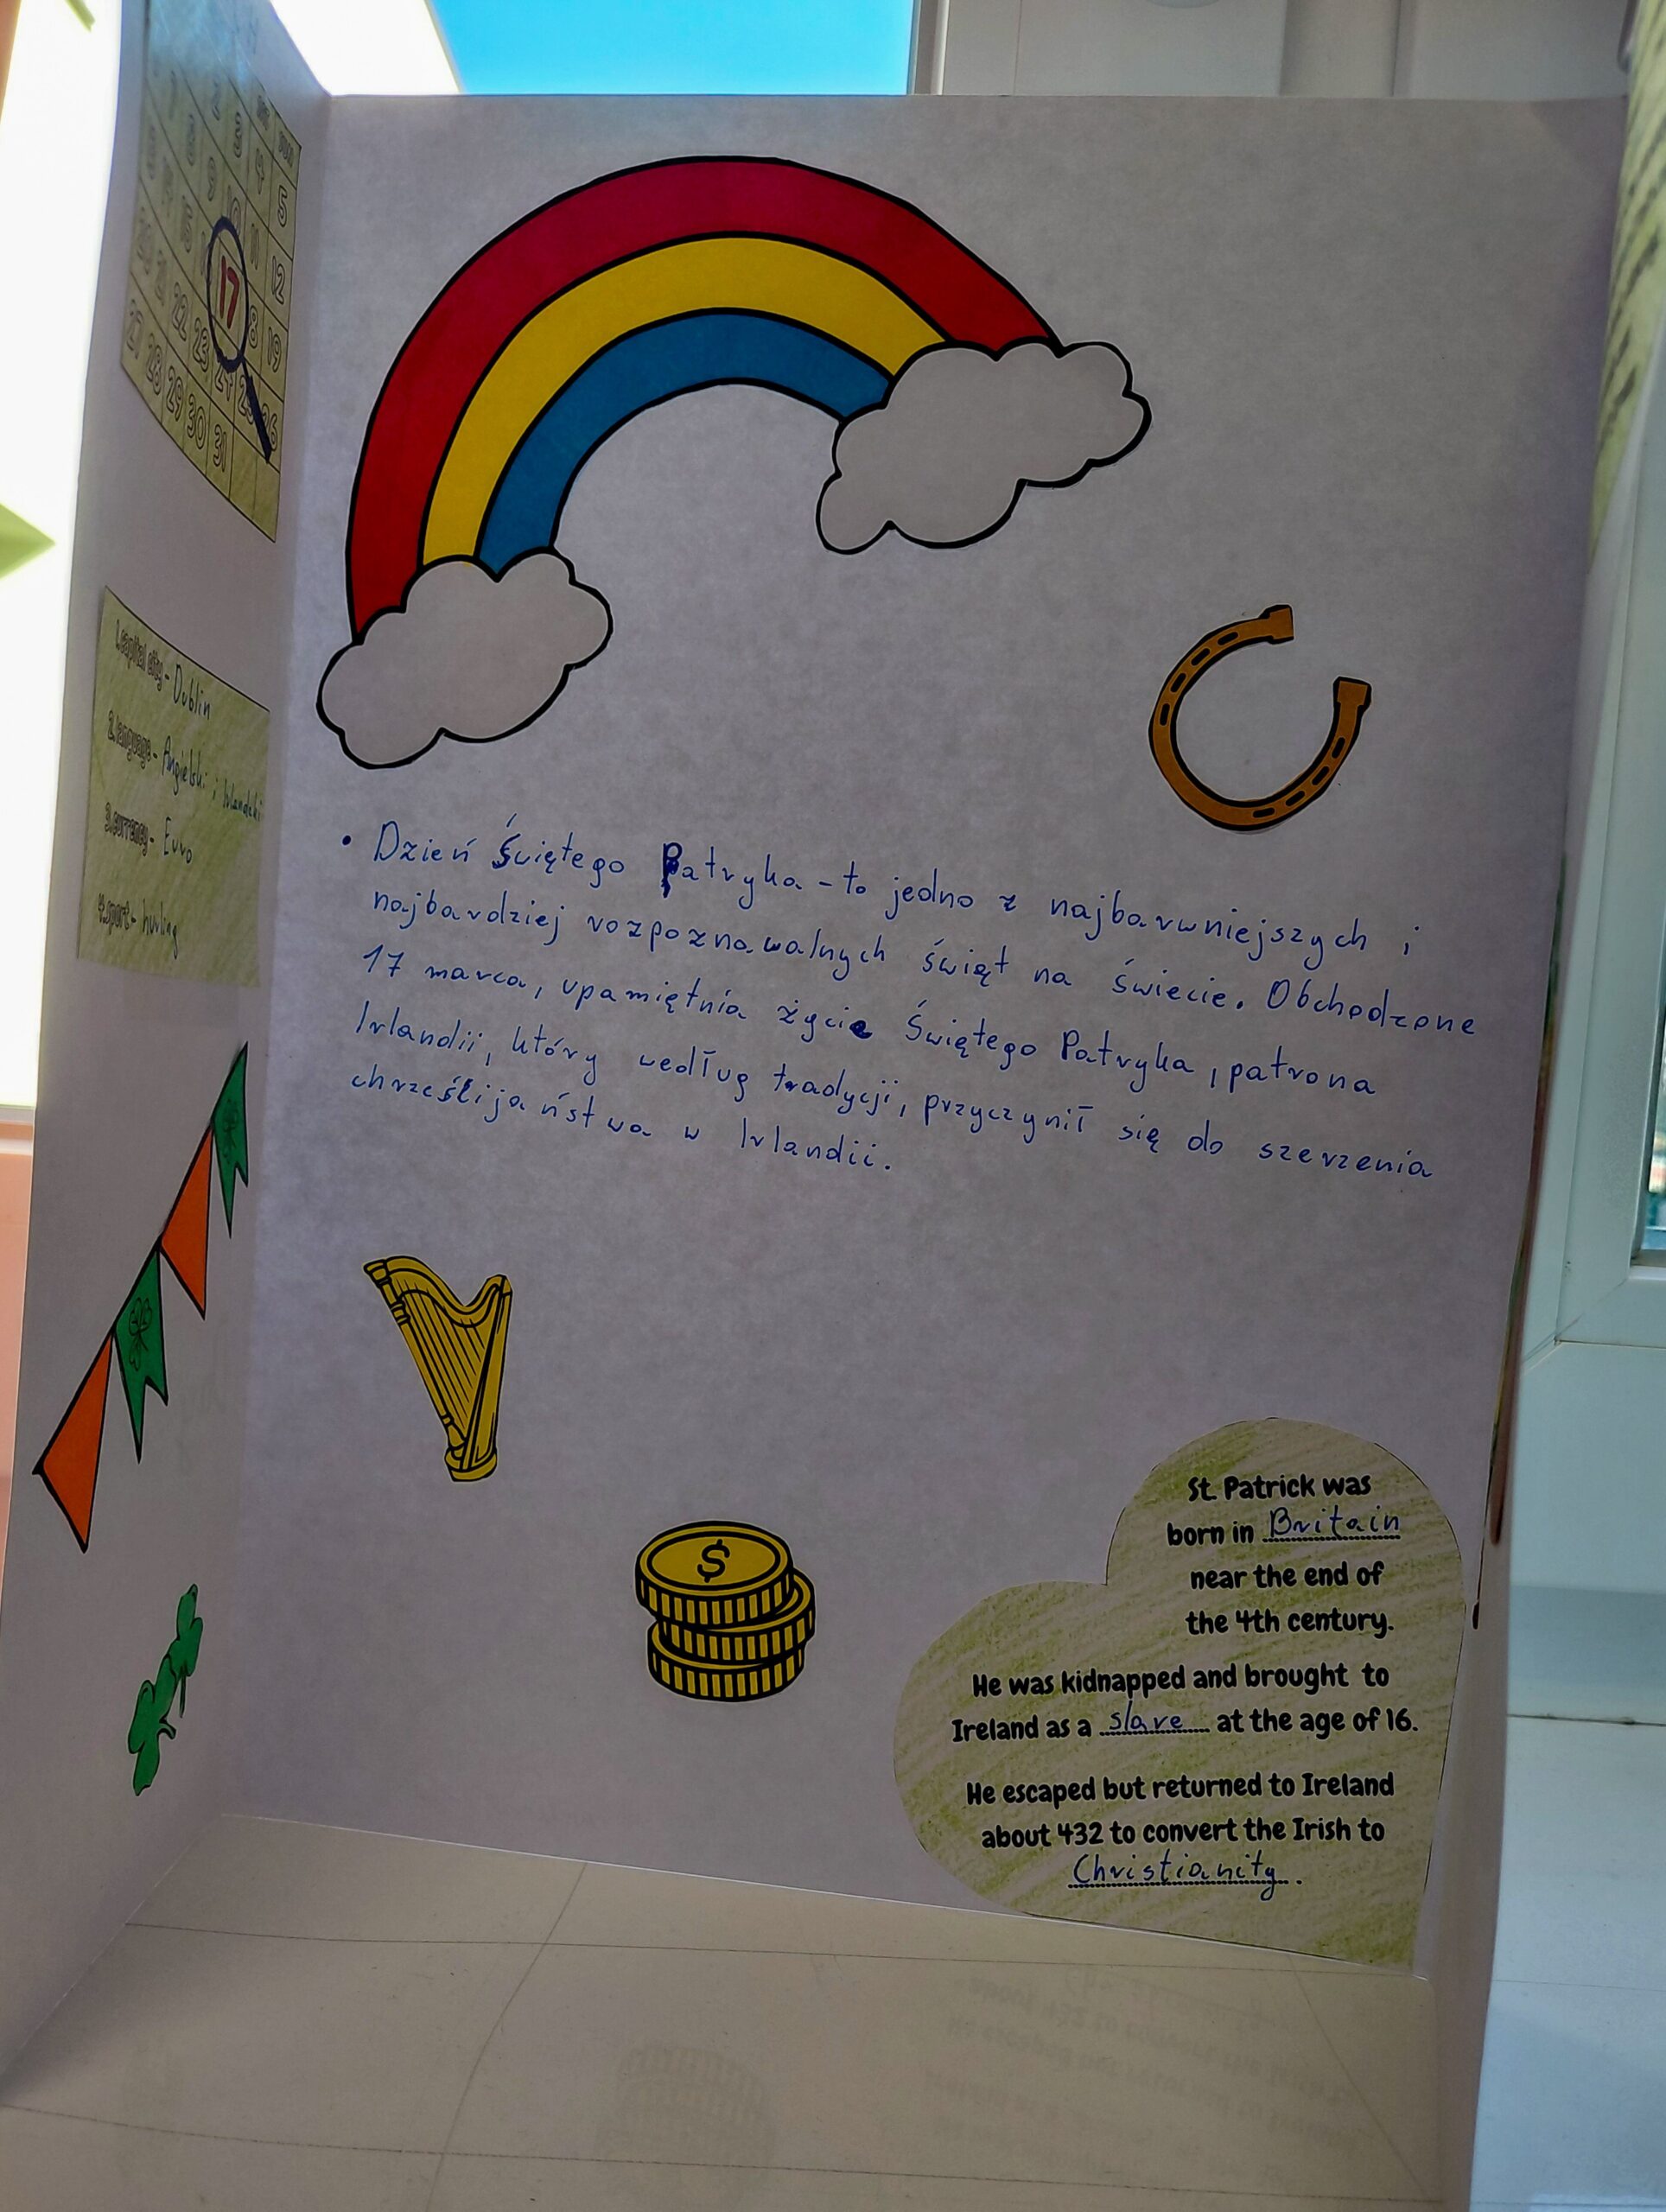 SUN
2
3
4
5
9
11
12
17
18
19
22
23
24
25
26
27
28
29
30
31
1.capital city - Dublin
2.language - Angielski i Irlandzki
3.currency - Euro
4.sport - hurling
• Dzień Świętego Patryka - to jedno z najbarwniejszych i
najbardziej rozpoznawalnych świąt na świecie. Obchodzone
17 marca, upamiętnia życie Świętego Patryka, patrona
Irlandii, który według tradycji, przyczynił się do szerzenia
chrześcijaństwa w Irlandii.
$
St. Patrick was
born in Britain
near the end of
the 4th century.
He was kidnapped and brought to
Ireland as a slave at the age of 16.
He escaped but returned to Ireland
about 432 to convert the Irish to
Christianity.